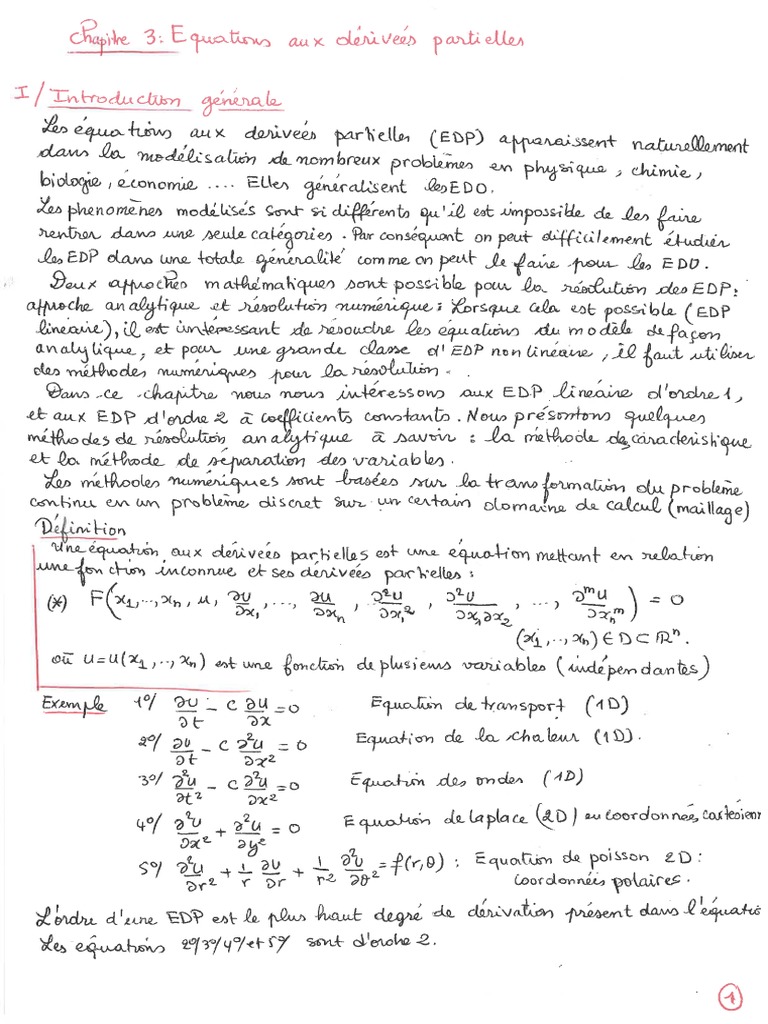 Chapitre 3: Equations aux dérivées partielles
I/ Introduction générale
Les équations aux derivées partielles (EDP) apparaissent naturellement
dans la modélisation de nombreux problèmes en physique, chimie,
biologie, économie .... Elles généralisent les EDO.
Les phenomènes modélisés sont si différents qu'il est impossible de les faire
rentrer dans une seule catégories. Par conséquant on peut difficilement étudier
les EDP dans une totale généralité comme on peut le faire pour les EDO.
Deux approches mathématiques sont possible pour la résolution des EDP:
approche analytique et résolution numérique: Lorsque cela est possible (EDP
linéaire), il est intéressant de résoudre les équations du modèle de façon
analytique, et pour une grande classe d'EDP non linéaire, il faut utiliser
des méthodes numériques pour la résolution.
Dans ce chapitre nous nous intéressons aux EDP linéaire d'ordre 1,
et aux EDP d'ordre 2 à coefficients constants. Nous présentons quelques
méthodes de résolution analytique à savoir: la méthode des caracteristique
et la méthode de séparation des variables.
Les méthodes numériques sont basées sur la transformation du problème
continu en un problème discret sur un certain domaine de calcul (maillage)
Définition
Une équation aux dérivées partielles est une équation mettant en relation
une fonction inconnue et ses dérivées partielles:
(*) F(x₁,..,xₙ, u, ∂u/∂x₁, ..., ∂u/∂xₙ, ∂²u/∂x₁², ∂²u/∂x₁∂x₂, ..., ∂ᵐu/∂xₙᵐ) = 0
(x₁,..,xₙ) ∈ D ⊂ ℝⁿ.
où u=u(x₁,..,xₙ) est une fonction de plusiens variables (indépendantes)
Exemple 1°/ ∂u/∂t - c ∂u/∂x = 0 Equation de transport (1D)
2°/ ∂u/∂t - c ∂²u/∂x² = 0 Equation de la chaleur (1D).
3°/ ∂²u/∂t² - c ∂²u/∂x² = 0 Equation des ondes (1D)
4°/ ∂²u/∂x² + ∂²u/∂y² = 0 Equation de laplace (2D) en coordonnées cartésienn
5°/ ∂²u/∂r² + 1/r ∂u/∂r + 1/r² ∂²u/∂θ² = f(r,θ) : Equation de poisson 2D:
coordonnées polaires.
L'ordre d'une EDP est le plus haut degré de dérivation présent dans l'équatio
Les équations 2°/3°/4°/et 5°/ sont d'ordre 2.
1